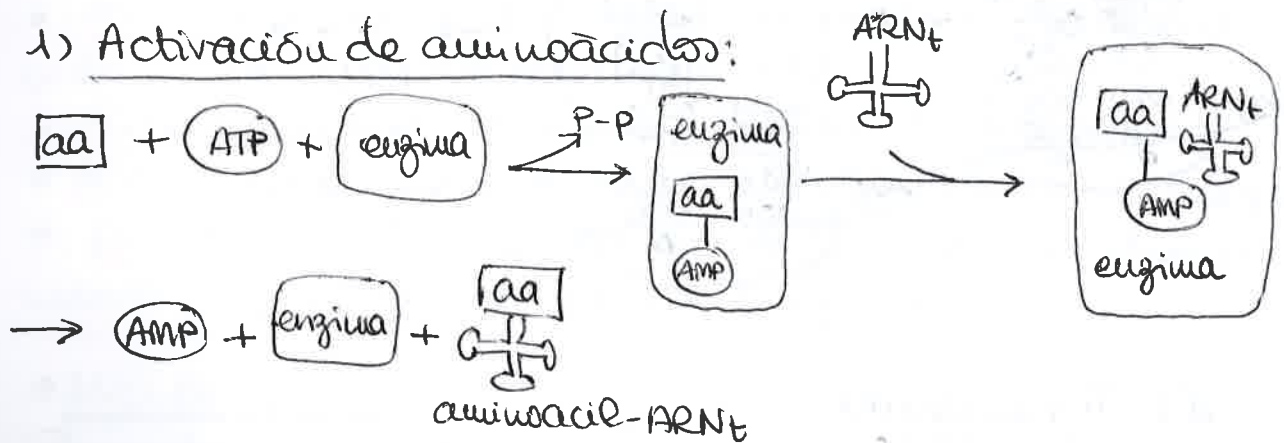 1) Activación de aminoácidos:
ARNt
aa + ATP + enzima
P-P
enzima
aa
AMP
aa
ARNt
AMP
enzima
AMP + enzima + aa
aminoacil-ARNt